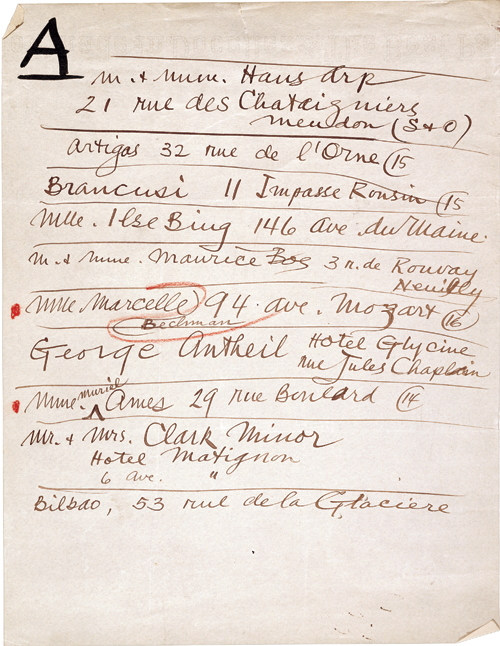 A
M. & Mme. Hans Arp
21 rue des Chataigniers
Meudon (S & O)
Artigas 32 rue de l'Orne (15
Brancusi 11 Impasse Ronsin (15
Mlle. Ilse Bing 146 ave. du Maine
M. & Mme. Maurice 3 r. de Rouvay
Neuilly
Mlle Marcelle 94 ave. Mozart (16
Bechman
George Antheil Hotel Glycine
rue Jules Chaplain
Mme Muriel Ames 29 rue Boulard (14
Mr. & Mrs. Clark Minor
Hotel Matignon
6 Ave. "
Bilbao, 53 rue de la Glaciere